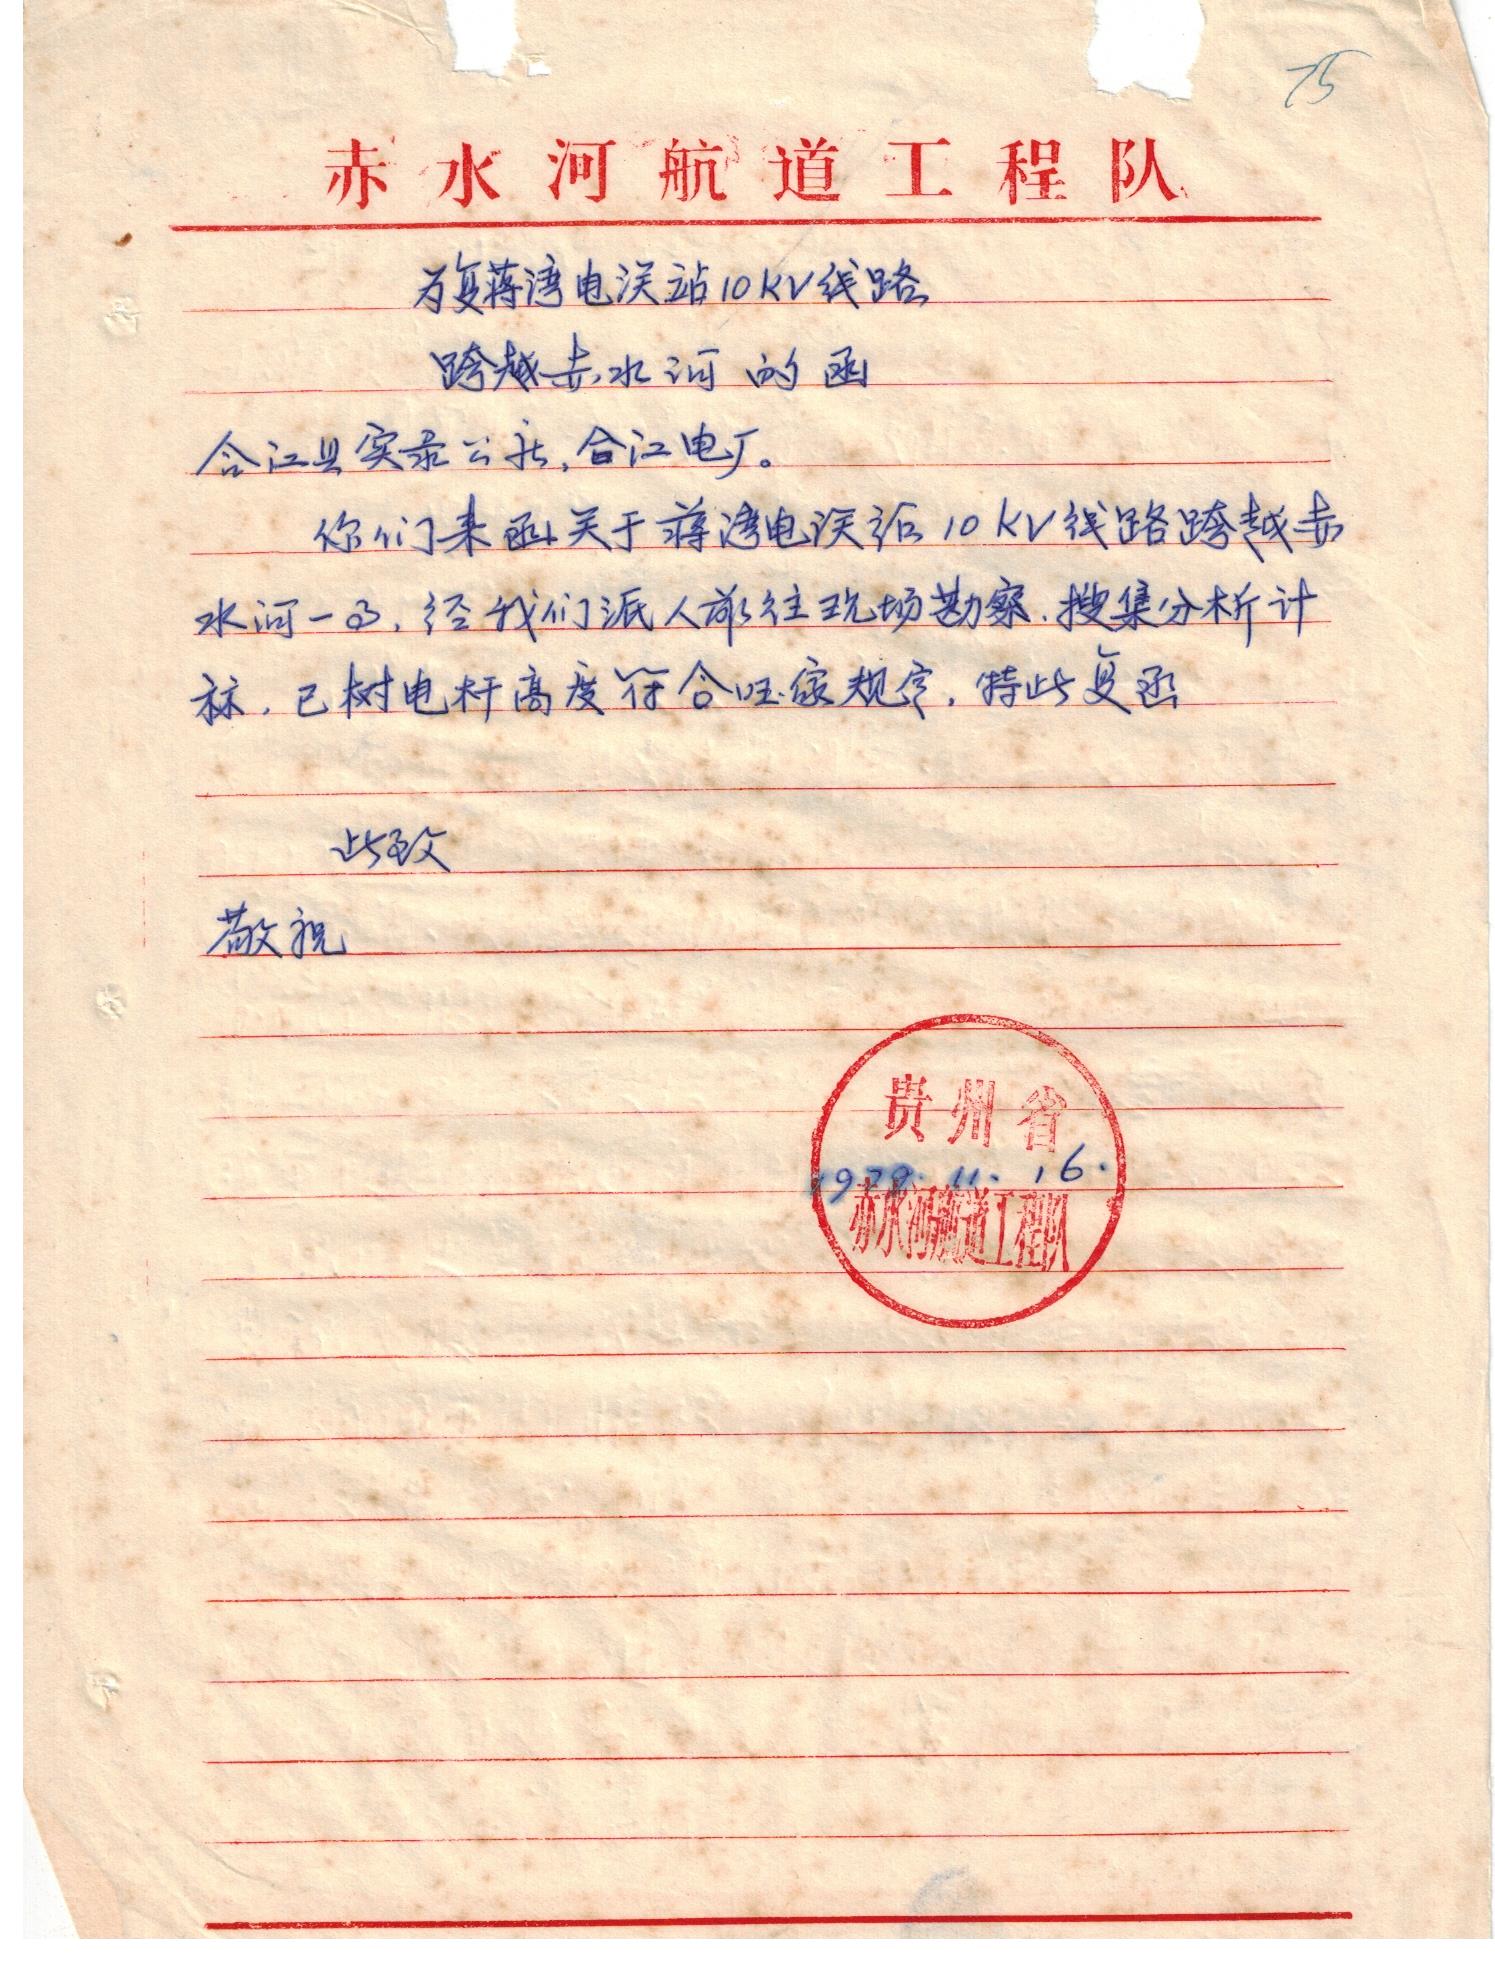 75
赤水河航道工程队
为复蒋湾电渓站10KV线路
跨越赤水河的函
合江县实录公社,合江电厂。
你们来函关于蒋湾电渓站10KV线路跨越赤
水河一事,经我们派人前往现场勘察.搜集分析计
标.已树电杆高度符合国家规定,特此复函
此致
敬祝
贵州省
1979.11.16.
赤水河航道工程队